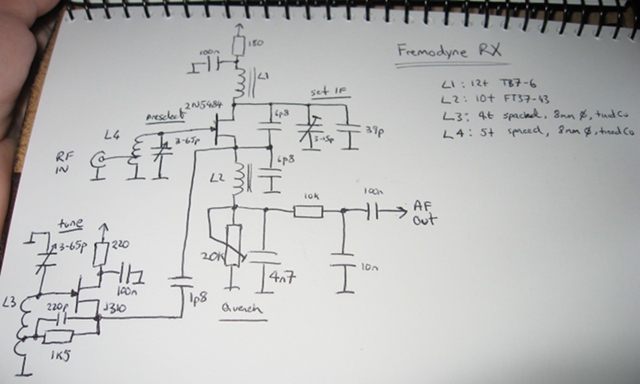 Fremodyne RX
L1: 12t T37-6
L2: 10t FT37-43
L3: 4t spaced, 8mm Ø, tinned Cu
L4: 5t spaced, 8mm Ø, tinned Cu
150
100n
L1
set IF
2N5484
preselect
6p8
39p
L4
3-65p
RF
IN
6p8
L2
10k
100n
AF
out
tune
3-65p
220
20k
4n7
10n
100n
1p8
Quench
L3
220p
J310
1K5